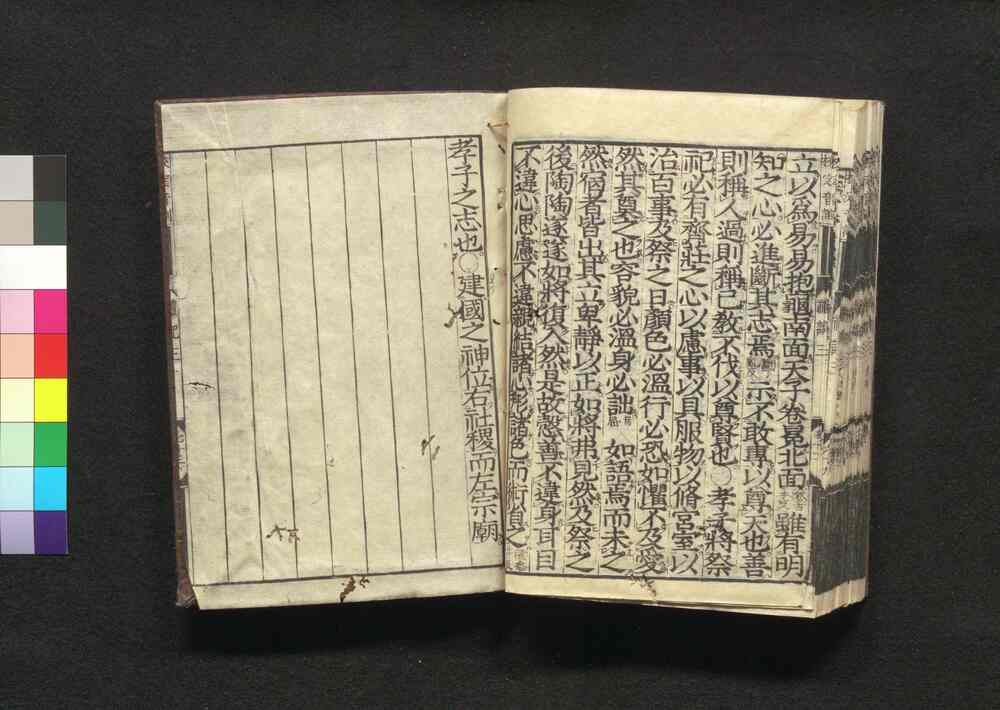 立以爲易易抱龜南面天子卷冕北面雖有明
知之心必進斷其志焉示不敢專以尊天也善
則稱人過則稱己教不伐以尊賢也○孝子將祭
祀必有齊莊之心以慮事以具服物以脩宮室以
治百事及祭之日顏色必溫行必恐如懼不及愛
然其奠之也容貌必溫身必詘如語焉而未之
然宿者皆出其立卑靜以正如將弗見然及祭之
後陶陶遂遂如將復入然是故慤善不違身耳目
不違心思慮不違親結諸心形諸色而術省之
孝子之志也○建國之神位右社稷而左宗廟